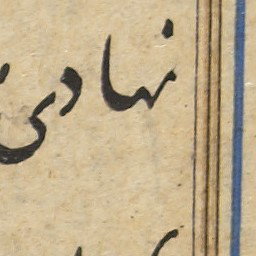 نهادی